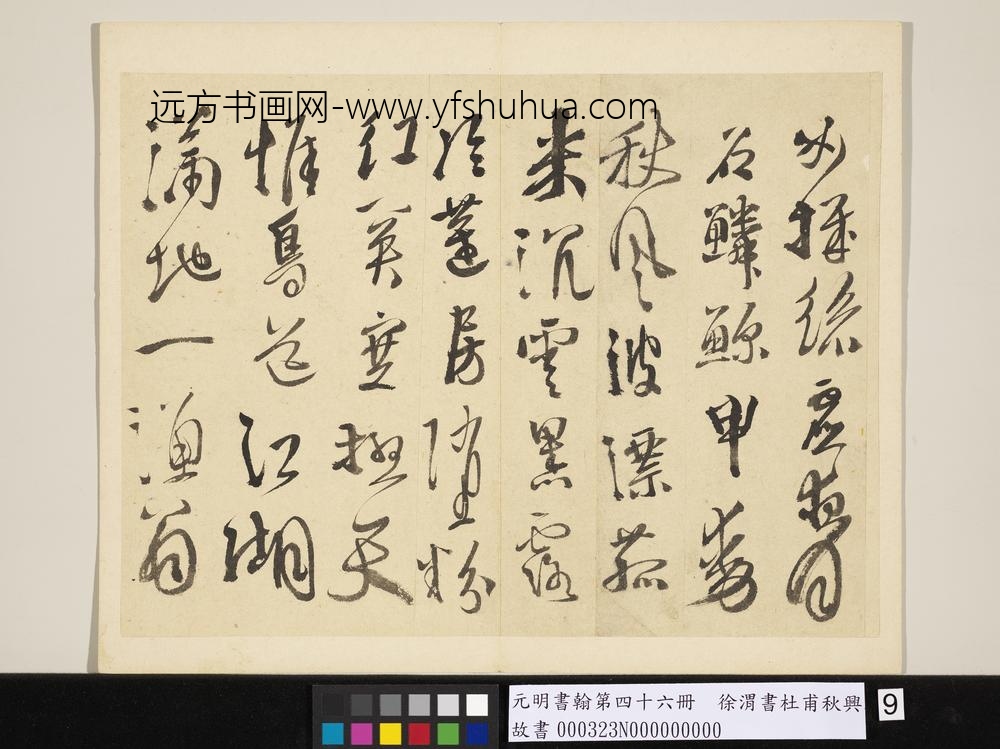 远方书画网-www.yfshuhua.com
女機絲虛夜月
石鱗鯨甲動
秋風波漂菰
米沉雲黑露
冷蓮房墜粉
紅關塞極天
惟鳥道江湖
滿地一漁翁
元明書翰第四十六冊 徐渭書杜甫秋興
故書 000323N000000000
9